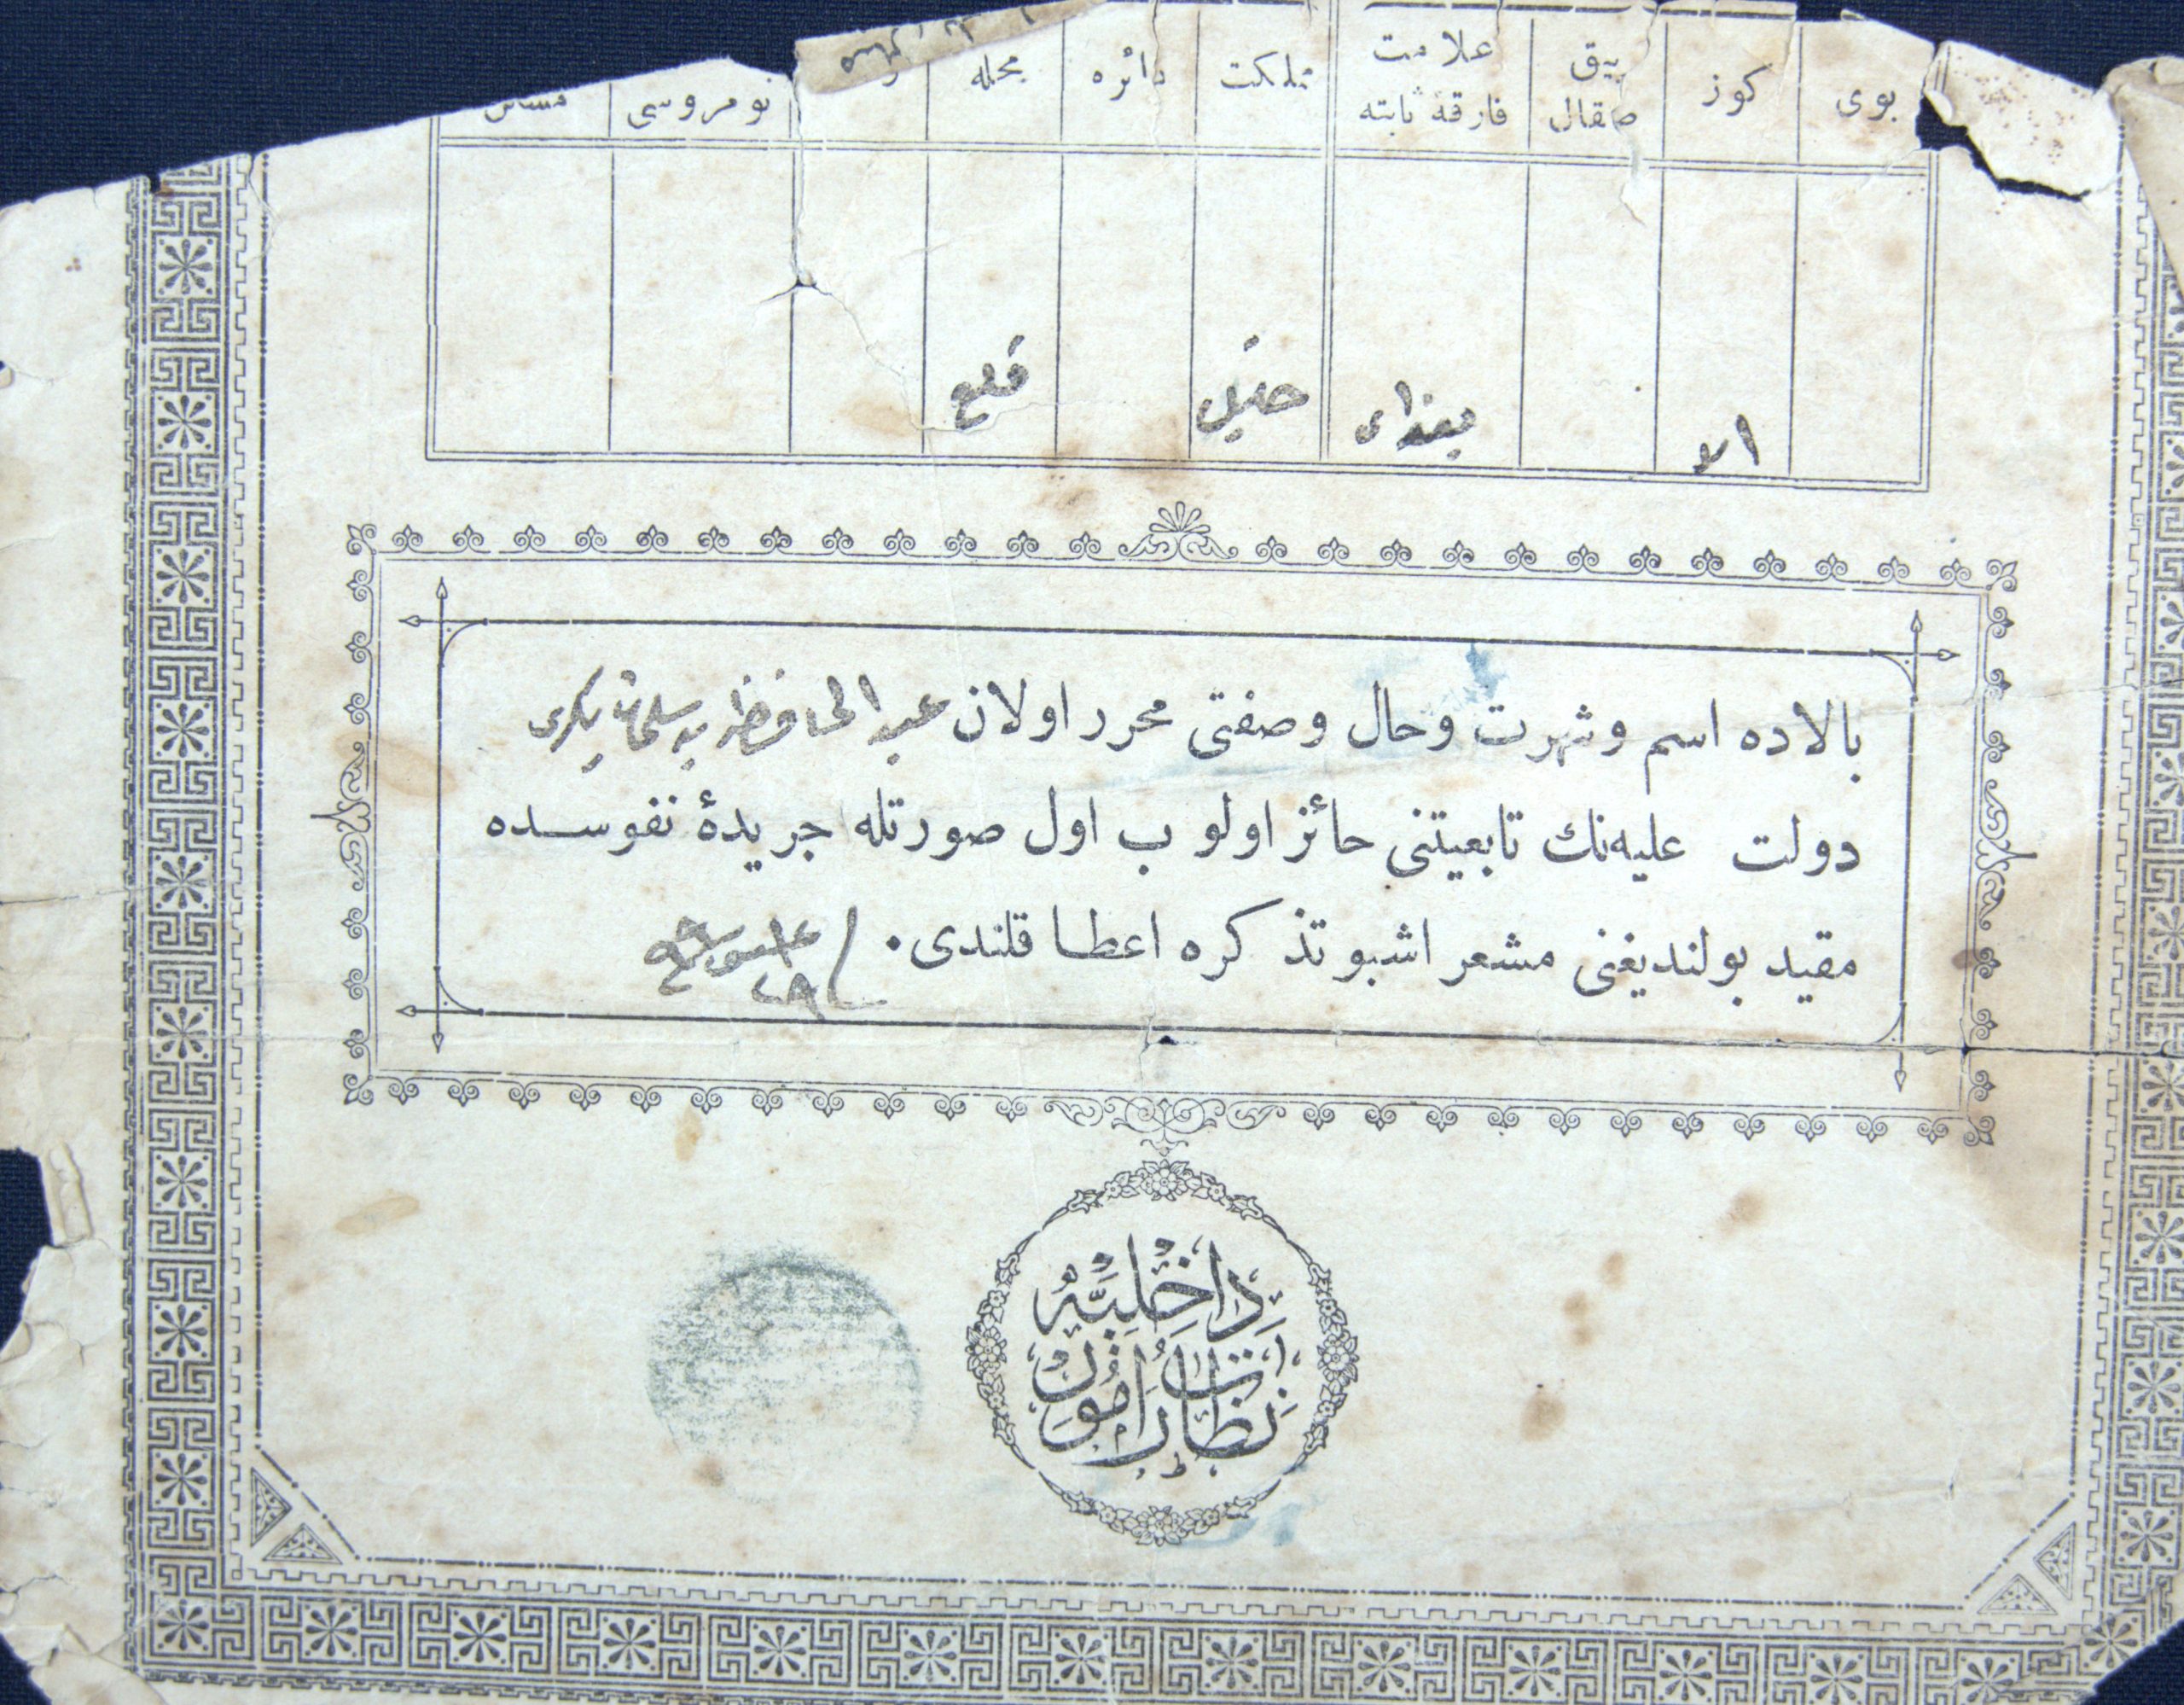 بوی
كوز
بیق صقال
علامت فارقهٔ ثابته
مملكت
دائره
محله
نومروسی
الا
خليل
بالاده اسم وشهرت وحال وصفتی محرر اولان عبد الحافظ بن
دولت علیه‌نك تابعیتنی حائز اولوب اول صورتله جریدهٔ نفوسده
مقید بولندیغنی مشعر اشبو تذكره اعطا قلندی.
داخلیه
نظارت امور